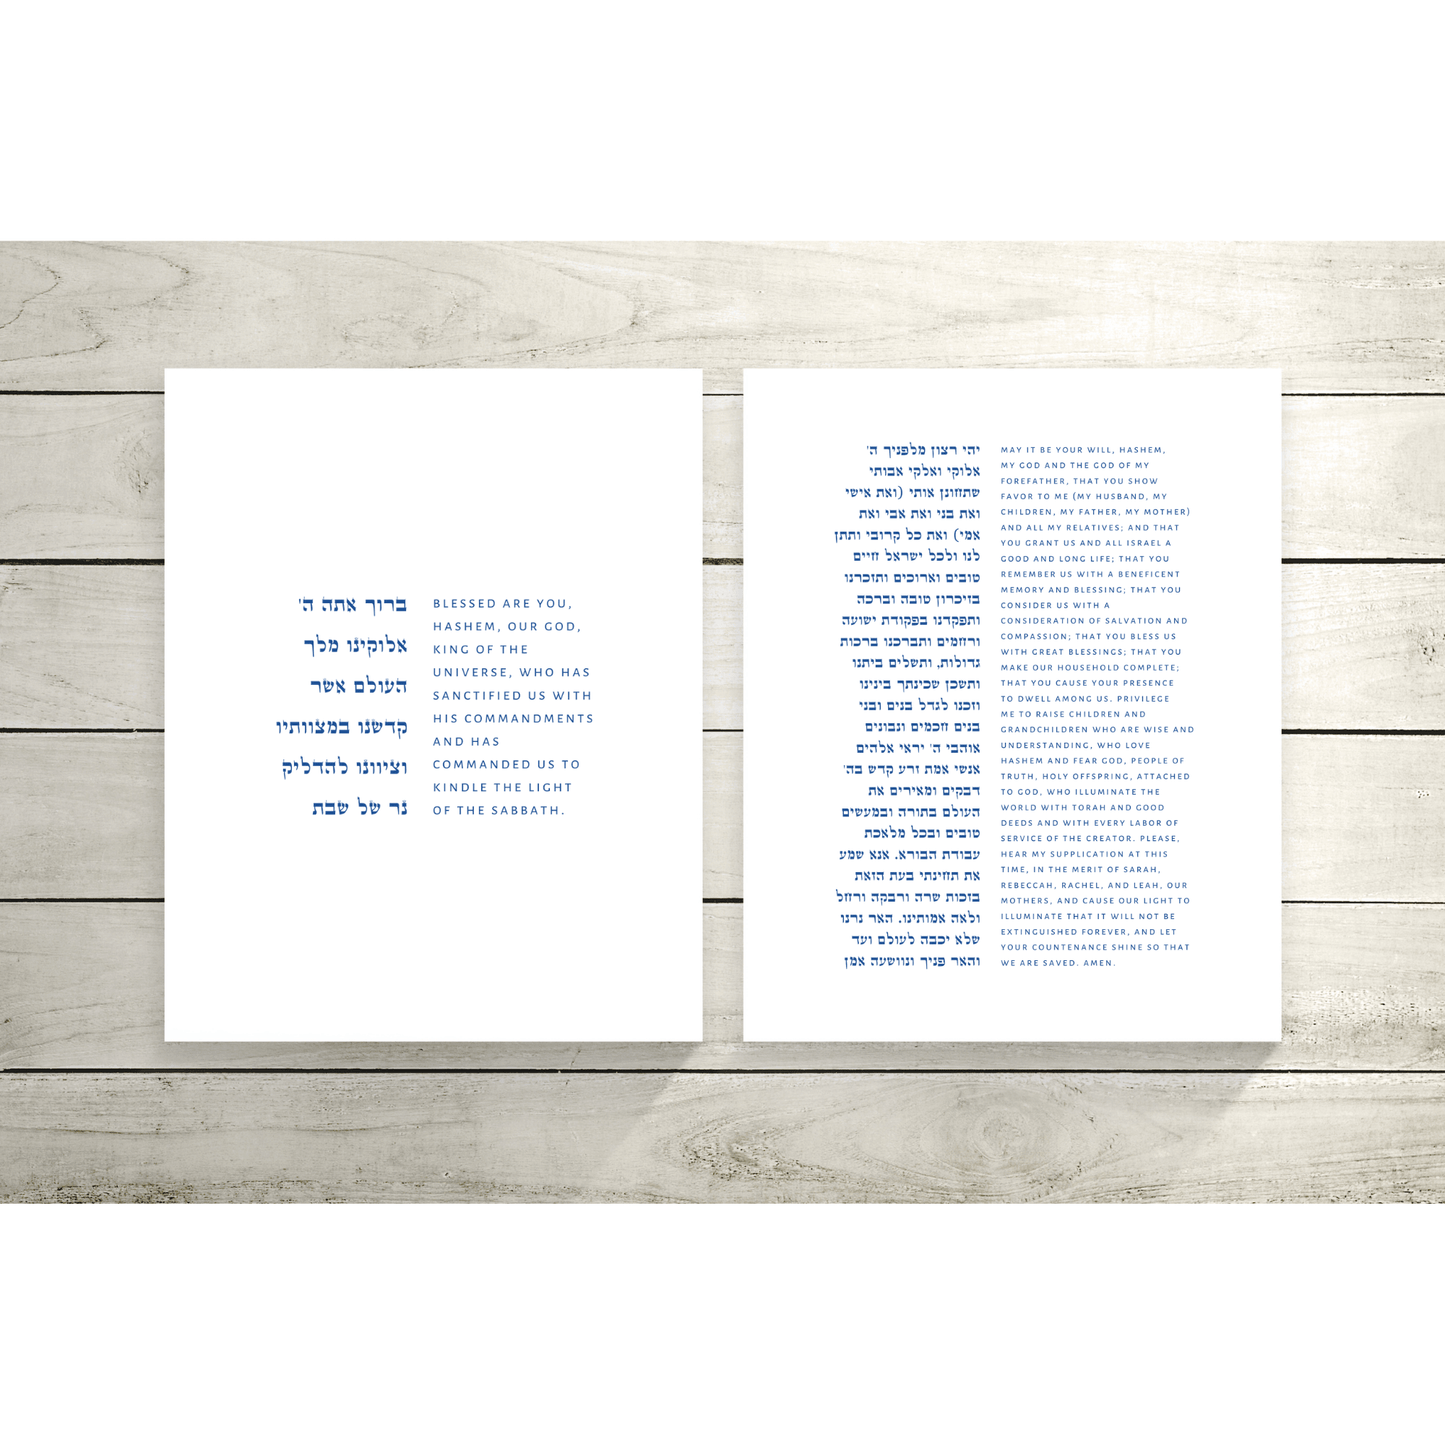 ברוך אתה ה'
אלוקינו מלך
העולם אשר
קדשנו במצוותיו
וציוונו להדליק
נר של שבת
BLESSED ARE YOU,
HASHEM, OUR GOD,
KING OF THE
UNIVERSE, WHO HAS
SANCTIFIED US WITH
HIS COMMANDMENTS
AND HAS
COMMANDED US TO
KINDLE THE LIGHT
OF THE SABBATH.
יהי רצון מלפניך ה'
אלוקי ואלקי אבותי
שתחונן אותי (ואת אישי
ואת בני ואת אבי ואת
אמי) ואת כל קרובי ותתן
לנו ולכל ישראל חיים
טובים וארוכים ותזכרנו
בזיכרון טובה וברכה
ותפקדנו בפקודת ישועה
ורחמים ותברכנו ברכות
גדולות, ותשלים ביתנו
ותשכן שכינתך בינינו
וזכנו לגדל בנים ובני
בנים חכמים ונבונים
אוהבי ה' יראי אלהים
אנשי אמת זרע קדש בה'
דבקים ומאירים את
העולם בתורה ובמעשים
טובים ובכל מלאכת
עבודת הבורא. אנא שמע
את תחינתי בעת הזאת
בזכות שרה ורבקה ורחל
ולאה אמותינו. האר נרנו
שלא יכבה לעולם ועד
והאר פניך ונוושעה אמן
MAY IT BE YOUR WILL, HASHEM,
MY GOD AND THE GOD OF MY
FOREFATHER, THAT YOU SHOW
FAVOR TO ME (MY HUSBAND, MY
CHILDREN, MY FATHER, MY MOTHER)
AND ALL MY RELATIVES; AND THAT
YOU GRANT US AND ALL ISRAEL A
GOOD AND LONG LIFE; THAT YOU
REMEMBER US WITH A BENEFICENT
MEMORY AND BLESSING; THAT YOU
CONSIDER US WITH A
CONSIDERATION OF SALVATION AND
COMPASSION; THAT YOU BLESS US
WITH GREAT BLESSINGS; THAT YOU
MAKE OUR HOUSEHOLD COMPLETE;
THAT YOU CAUSE YOUR PRESENCE
TO DWELL AMONG US. PRIVILEGE
ME TO RAISE CHILDREN AND
GRANDCHILDREN WHO ARE WISE AND
UNDERSTANDING, WHO LOVE
HASHEM AND FEAR GOD, PEOPLE OF
TRUTH, HOLY OFFSPRING, ATTACHED
TO GOD, WHO ILLUMINATE THE
WORLD WITH TORAH AND GOOD
DEEDS AND WITH EVERY LABOR OF
SERVICE OF THE CREATOR. PLEASE,
HEAR MY SUPPLICATION AT THIS
TIME, IN THE MERIT OF SARAH,
REBECCAH, RACHEL, AND LEAH, OUR
MOTHERS, AND CAUSE OUR LIGHT TO
ILLUMINATE THAT IT WILL NOT BE
EXTINGUISHED FOREVER, AND LET
YOUR COUNTENANCE SHINE SO THAT
WE ARE SAVED. AMEN.